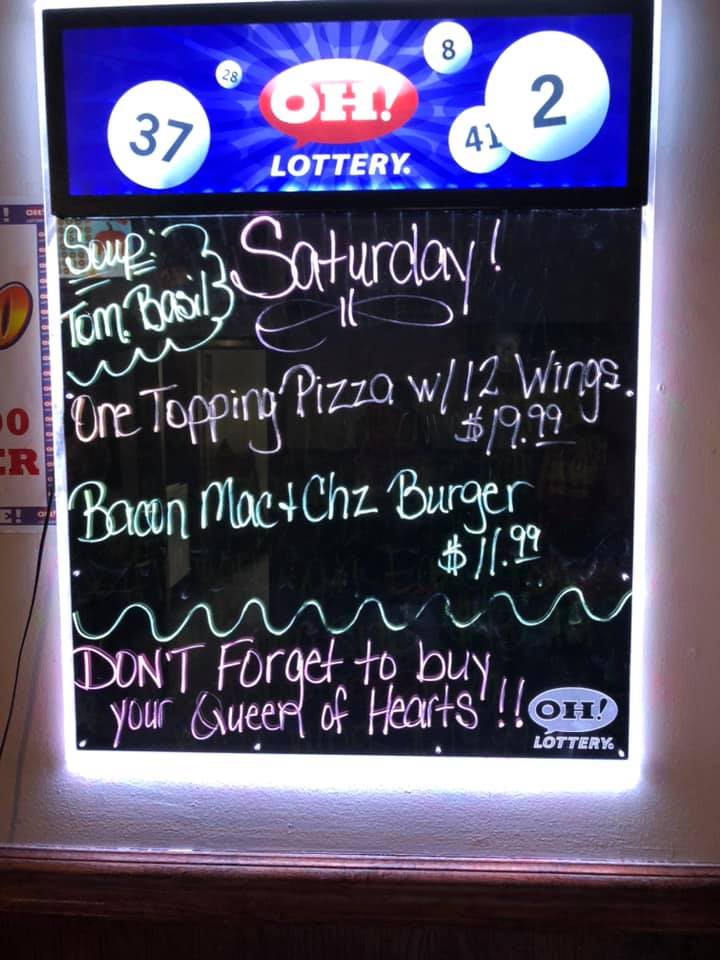 37
28
OH!
LOTTERY.
8
41
2
Soup:
Tom. Basil
Saturday!
One Topping Pizza w/12 Wings.
$19.99
Bacon Mac + Chz Burger
$11.99
DON'T Forget to buy
your Queen of Hearts!!
OH!
LOTTERY.